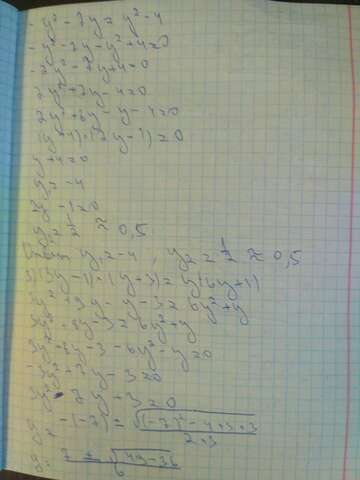 -y² - 7y = y² - 4
-y² - 7y - y² + 4 = 0
-2y² - 7y + 4 = 0
2y² + 7y - 4 = 0
2y² + 8y - y - 4 = 0
(y + 4) · (2y - 1) = 0
y + 4 = 0
y = -4
2y - 1 = 0
y = 1/2 ≈ 0,5
Ответ y₁ = -4, y₂ = 1/2 ≈ 0,5
3) (3y - 1) · (y + 3) = y(6y + 1)
3y² + 9y - y - 3 = 6y² + y
3y² + 8y - 3 = 6y² + y
3y² + 8y - 3 - 6y² - y = 0
-3y² + 7y - 3 = 0
3y² - 7y + 3 = 0
y = -(-7) ± √(-7)² - 4 · 3 · 3
2 · 3
y = 7 ± √49 - 36
6